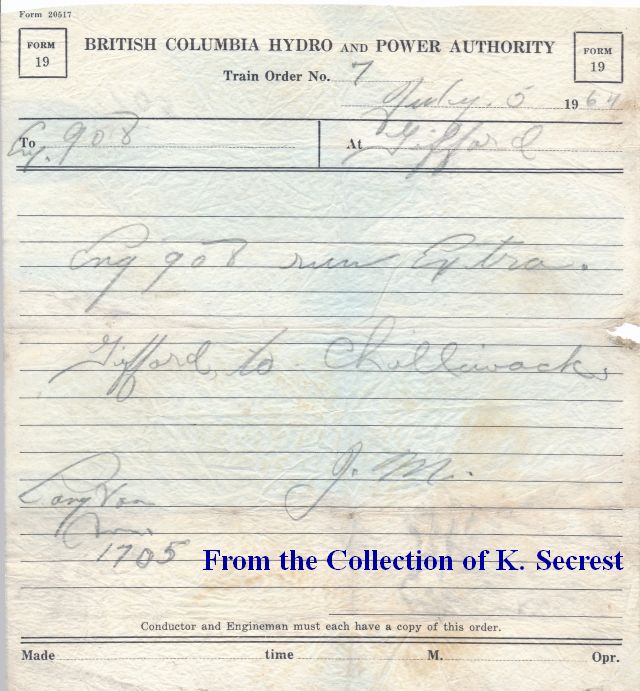 Form 20517
FORM 19
BRITISH COLUMBIA HYDRO AND POWER AUTHORITY
FORM 19
Train Order No. 7
July 5 1964
To Eng. 908 At Gifford
Eng 908 run Extra.
Gifford to Chilliwack.
J. M.
1705
From the Collection of K. Secrest
Conductor and Engineman must each have a copy of this order.
Made time M. Opr.